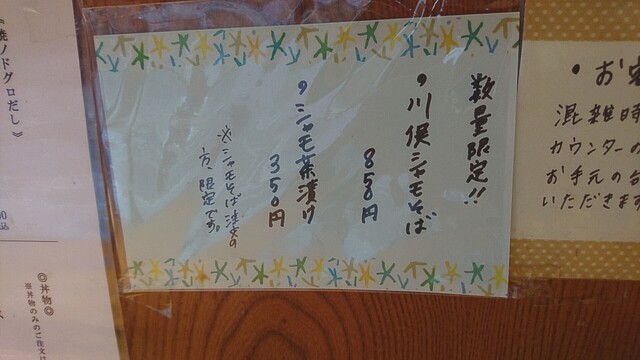 数量限定!!
・川俣シャモそば
850円
・シャモ茶漬け
350円
※シャモそば注文の
方、限定です。
・お
混雑時
カウンターの
お手元の
いただきます
焼ノドグロだし》
◎丼物◎
※丼物のみのご注文は